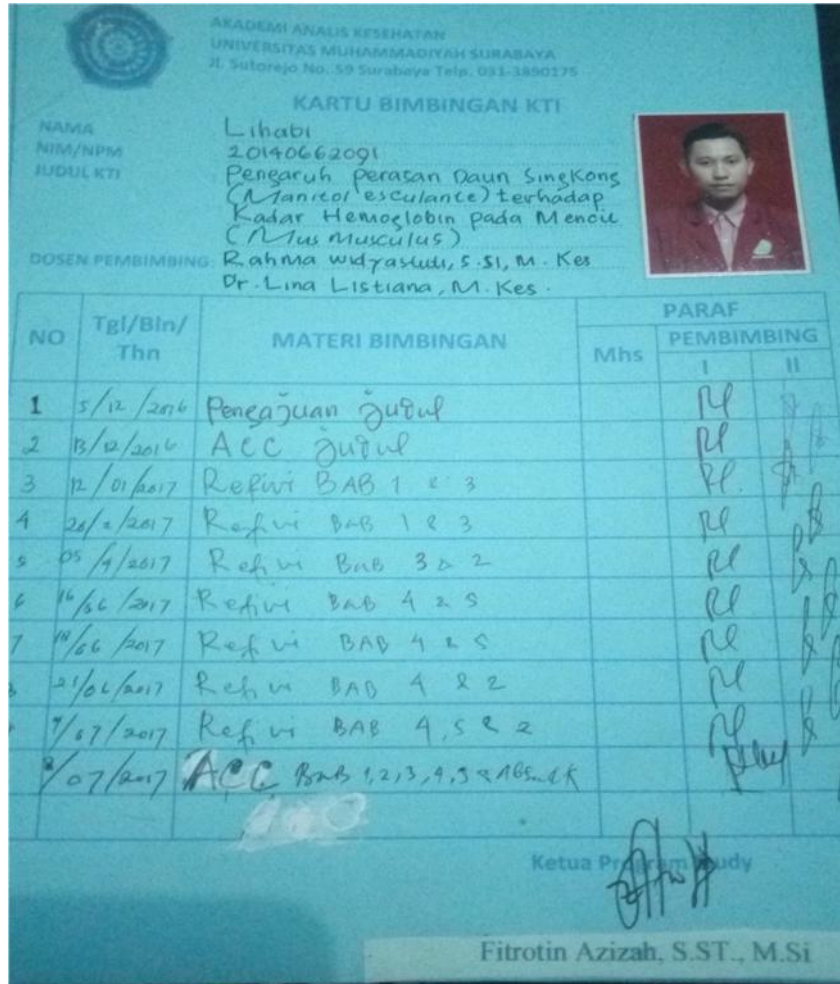 AKADEMI ANALIS KESEHATAN
UNIVERSITAS MUHAMMADIYAH SURABAYA
Jl. Sutorejo No. 59 Surabaya Telp. 031-3890175
KARTU BIMBINGAN KTI
NAMA Lihabi
NIM/NPM 20140662091
JUDUL KTI Pengaruh perasan Daun Singkong
(Manitol esculante) terhadap
Kadar Hemoglobin pada Mencit
(Mus musculus)
DOSEN PEMBIMBING: Rahma widyastuti, S.SI, M. Kes
Dr. Lina Listiana, M. Kes.
NO Tgl/Bln/Thn MATERI BIMBINGAN PARAF
Mhs PEMBIMBING
I II
1 5/12/2016 Pengajuan Judul
2 13/12/2016 ACC Judul
3 12/01/2017 Refivi BAB 1 & 3
4 Refivi BAB 1 & 3
5 05/4/2017 Refivi BAB 3 & 2
6 16/06/2017 Refivi BAB 4 & 5
7 /06/2017 Refivi BAB 4 & 5
21/06/2017 Refivi BAB 4 & 2
/07/2017 Refivi BAB 4, 5 & 2
/07/2017 ACC BAB 1, 2, 3, 4, 5 &
Ketua Program Study
Fitrotin Azizah, S.ST., M.Si